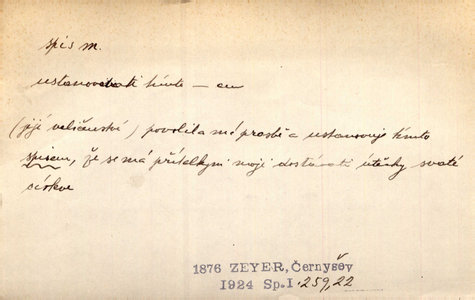 spis m.
ustanovovati tímto — em
(její veličenství) povolila mé prosbě a ustanovuje tímto
spisem, že se má přítelkyni mojí dostávati útěchy svaté
církve
1876 ZEYER, Černyšev
1924 Sp.I. 259,22